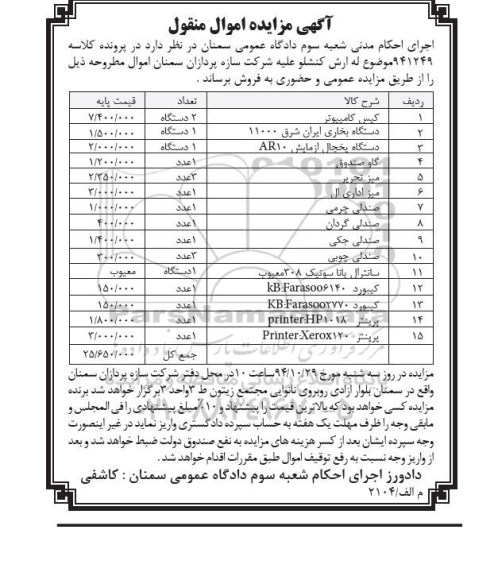 آگهی مزایده اموال منقول
اجرای احکام مدنی شعبه سوم دادگاه عمومی سمنان در نظر دارد در پرونده کلاسه
۹۴۱۲۴۹موضوع له ارش کنشلو علیه شرکت سازه پردازان سمنان اموال مطروحه ذیل
را از طریق مزایده عمومی و حضوری به فروش برساند .
ردیف شرح کالا تعداد قیمت پایه
۱ کیس کامپیوتر ۲ دستگاه ۷/۴۰۰/۰۰۰
۲ دستگاه بخاری ایران شرق ۱۱۰۰۰ ۱ دستگاه ۱/۵۰۰/۰۰۰
۳ دستگاه یخچال ازمایش AR۱۰ ۱ دستگاه ۲/۰۰۰/۰۰۰
۴ گاو صندوق ۱عدد ۱/۲۰۰/۰۰۰
۵ میز تحریر ۲عدد ۲/۳۵۰/۰۰۰
۶ میز اداری ال ۱عدد ۳/۰۰۰/۰۰۰
۷ صندلی چرمی ۱عدد ۱/۰۰۰/۰۰۰
۸ صندلی گردان ۱عدد ۴۰۰/۰۰۰
۹ صندلی جکی ۱عدد ۱/۴۰۰/۰۰۰
۱۰ صندلی چوبی ۳عدد ۳۰۰/۰۰۰
۱۱ سانترال پانا سونیک ۳۰۸معیوب ۱دستگاه معیوب
۱۲ کیبورد kB:Farasoo۶۱۴۰ ۱عدد ۱۵۰/۰۰۰
۱۳ کیبورد KB:Farasoo۲۷۷۰ ۱عدد ۱۵۰/۰۰۰
۱۴ پرینتر printer:HP۱۰۱۸ ۱عدد ۱/۸۰۰/۰۰۰
۱۵ پرینتر Printer:Xerox۱۲۰ ۱عدد ۳/۰۰۰/۰۰۰
جمع کل ۲۵/۶۵۰/۰۰۰
مزایده در روز سه شنبه مورخ ۹۴/۱۰/۲۹ساعت ۱۰در محل دفتر شرکت سازه پردازان سمنان
واقع در سمنان بلوار آزادی روبروی نانوایی مجتمع زیتون ط ۳واحد ۳برگزار خواهد شد برنده
مزایده کسی خواهد بود که بالاترین قیمت را پیشنهاد و ۱۰٪مبلغ پیشنهادی را فی المجلس و
مابقی وجه را ظرف مهلت یک هفته به حساب سپرده دادگستری واریز نماید در غیر اینصورت
وجه سپرده ایشان بعد از کسر هزینه های مزایده به نفع صندوق دولت ضبط خواهد شد و بعد
از واریز وجه نسبت به رفع توقیف اموال طبق مقررات اقدام خواهد شد .
دادورز اجرای احکام شعبه سوم دادگاه عمومی سمنان : کاشفی
م الف/۲۱۰۴